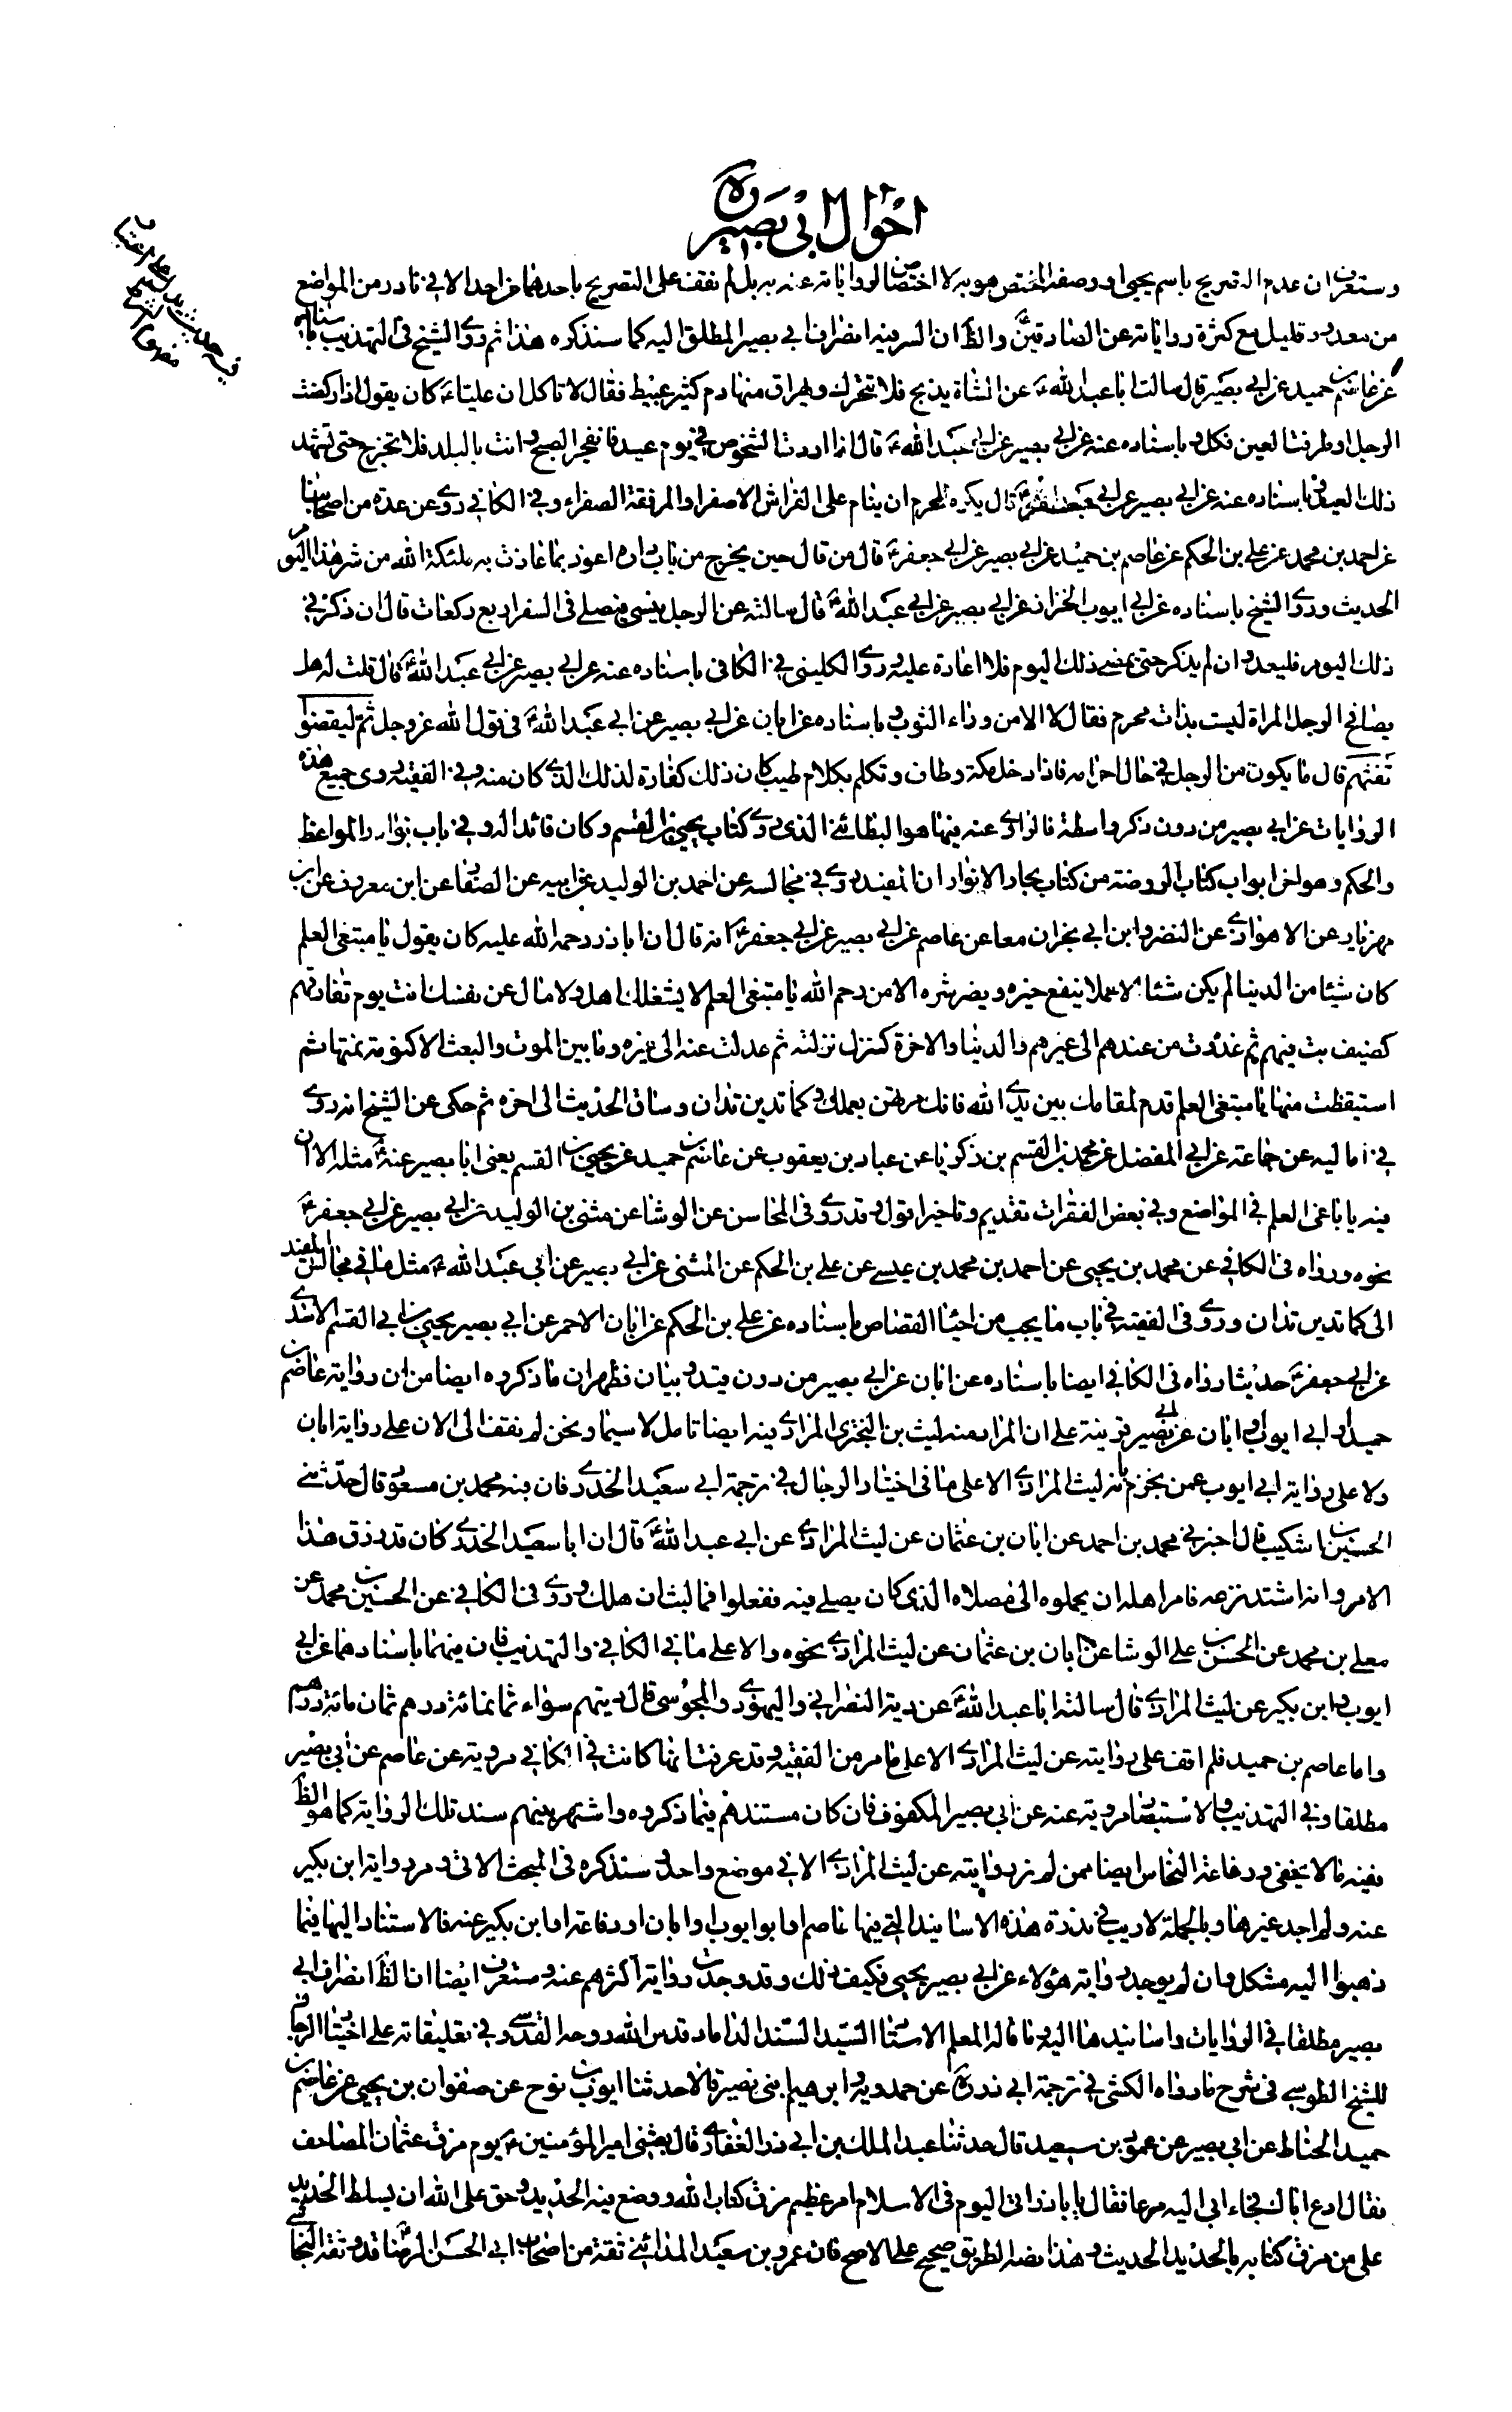 احوال ابي بصير ره
وستعرف ان عدم التصريح باسم يحيى او وصفه المختص هو به لا اختصاص الروايات عنه به بل لم نقف على التصريح باحدهما من احد الا في نادر من المواضع
من معدود وقليل مع كثرة رواياته عن الصادقين ع والظ ان السر فيه انصراف ابي بصير المطلق اليه كما سنذكره هذا ثم روى الشيخ في التهذيب باسناده
عن عاصم بن حميد عن ابي بصير قال سالت ابا عبد الله ع عن الشاة يذبح فلا تتحرك ويهراق منها دم كثير عبيط فقال لا تاكل ان عليا ع كان يقول اذا ركضت
الرجل او طرفت العين فكل وباسناده عنه عن ابي بصير عن ابي عبد الله ع قال اذا اردت الشخوص في يوم عيد فانفجر الصبح وانت بالبلد فلا تخرج حتى تشهد
ذلك العيد وباسناده عنه عن ابي بصير عن ابي جعفر ع قال يكره للمحرم ان ينام على الفراش الاصفر والمرفقة الصفراء وفي الكافي روى عن عدة من اصحابنا
عن احمد بن محمد عن علي بن الحكم عن عاصم بن حميد عن ابي بصير عن ابي جعفر ع قال من قال حين يخرج من باب داره اعوذ بما عاذت به ملئكة الله من شر هذا اليوم
الحديث وروى الشيخ باسناده عن ابي ايوب الخزاز عن ابي بصير عن ابي عبد الله ع قال سالته عن الرجل ينسى فيصلي في السفر اربع ركعات قال ان ذكر في
ذلك اليوم فليعد وان لم يذكر حتى يمضي ذلك اليوم فلا اعادة عليه وروى الكليني في الكافي باسناده عنه عن ابي بصير عن ابي عبد الله ع قال قلت له هل
يصافح الرجل المراة ليست بذات محرم فقال لا الا من وراء الثوب وباسناده عن ابان عن ابي بصير عن ابي عبد الله ع في قول الله عز وجل ثم ليقضوا
تفثهم قال ما يكون من الرجل في حال احرامه فاذا دخل مكة وطاف وتكلم بكلام طيب كان ذلك كفارة لذلك الذي كان منه وفي الفقيه روى جميع هذه
الروايات عن ابي بصير من دون ذكر واسطة فالراوي عنه فيها هو البطائني الذي روى كتاب يحيى بن القسم وكان قائدا له وفي باب نوادر المواعظ
والحكم وهو اخر ابواب كتاب الروضة من كتاب بحار الانوار ان المفيد روى في مجالسه عن احمد بن الوليد عن ابيه عن الصفار عن ابن معروف عن ابن
مهزيار عن الاهوازي عن النضر وابن ابي نجران معا عن عاصم عن ابي بصير عن ابي جعفر ع انه قال ان اباذر رحمه الله عليه كان يقول يا مبتغي العلم
كان شيئا من الدنيا لم يكن شئا الا عملا ينفع خيره ويضر شره الا من رحم الله يا مبتغي العلم لا يشغلك اهل ولا مال عن نفسك انت يوم تفارقهم
كضيف بت فيهم ثم غدوت من عندهم الى غيرهم والدنيا والاخرة كمنزل نزلته ثم عدلت عنه الى غيره وما بين الموت والبعث الا كنومة نمتها ثم
استيقظت منها يا مبتغي العلم قدم لمقامك بين يدي الله فانك مرتهن بعملك وكما تدين تدان وساق الحديث الى اخره ثم حكى عن الشيخ انه روى
في اماليه عن جماعة عن ابي المفضل عن محمد بن القسم بن زكريا عن عباد بن يعقوب عن عاصم بن حميد عن يحيى بن القسم يعني ابا بصير عنه ع مثله الا ان
فيه يا باغي العلم في المواضع وفي بعض الفقرات تقديم وتاخير اقول وقد روى في المحاسن عن الوشا عن مثنى بن الوليد عن ابي بصير عن ابي جعفر ع
نحوه ورواه في الكافي عن محمد بن يحيى عن احمد بن محمد بن عيسى عن علي بن الحكم عن المثنى عن ابي بصير عن ابي عبد الله ع مثل ما في مجالس المفيد
الى كما تدين تدان وروى في الفقيه في باب ما يجب من احياء القصاص باسناده عن علي بن الحكم عن ابان الاحمر عن ابي بصير يحيى بن ابي القسم الاسدي
عن ابي جعفر ع حديثا رواه في الكافي ايضا باسناده عن ابان عن ابي بصير من دون قيد وبيان فظهر ان ما ذكروه ايضا من ان رواية عاصم بن
حميد او ابي ايوب او ابان عن ابي بصير قرينة على ان المراد منه ليث بن البختري المرادي فيه ايضا تامل لا سيما ونحن لم نقف الى الان على رواية ابان
ولا على رواية ابي ايوب عمن يجزم بانه ليث المرادي الا على ما في اختيار الرجال في ترجمة ابي سعيد الخدري فان فيه محمد بن مسعود قال حدثني
الحسين بن اشكيب قال اخبرني محمد بن احمد عن ابان بن عثمان عن ليث المرادي عن ابي عبد الله ع قال ان ابا سعيد الخدري كان قد رزق هذا
الامر وانه اشتد نزعه فامر اهله ان يحملوه الى مصلاه الذي كان يصلي فيه ففعلوا فما لبث ان هلك وروى في الكافي عن الحسين بن محمد عن
معلى بن محمد عن الحسن بن علي الوشا عن ابان بن عثمان عن ليث المرادي نحوه والا على ما في الكافي والتهذيب فان فيهما باسنادهما عن ابي
ايوب وابن بكير عن ليث المرادي قال سالت ابا عبد الله ع عن دية النصراني واليهودي والمجوسي قال ديتهم سواء ثمانمائة درهم ثمان مائة درهم
واما عاصم بن حميد فلم اقف على روايته عن ليث المرادي الا على ما مر من الفقيه وقد عرفت انها كانت في الكافي مروية عن عاصم عن ابي بصير
مطلقا وفي التهذيب والاستبصار مروية عنه عن ابي بصير المكفوف فان كان مستندهم فيما ذكروه واشتهر بينهم سند تلك الرواية كما هو الظ
ففيه ما لا يخفى ورفاعة النخاس ايضا ممن لم نر روايته عن ليث المرادي الا في موضع واحد وسنذكره في المبحث الاتي ومر رواية ابن بكير
عنه ولم اجد غيرها وبالجملة لا ريب في ندرة هذه الاسانيد التي فيها عاصم او ابو ايوب او ابان او رفاعة او ابن بكير عنه فالاستناد اليها فيما
ذهبوا اليه مشكل وان لم يوجد رواية هؤلاء عن ابي بصير يحيى فكيف ذلك وقد وجدت رواية اكثرهم عنه وستعرف ايضا ان الظ انصراف ابي
بصير مطلقا في الروايات واسانيدها اليه وما قاله المعلم الاستاد السيد السند الداماد قدس الله روحه القدسي وفي تعليقاته على اختيار الرجال
للشيخ الطوسي في شرح ما رواه الكشي في ترجمة ابي ذر ره عن حمدويه وابرهيم ابني نصير قالا حدثنا ايوب بن نوح عن صفوان بن يحيى عن عاصم بن
حميد الحناط عن ابي بصير عن عمرو بن سعيد قال حدثنا عبد الملك بن ابي ذر الغفاري قال بعثني امير المؤمنين ع يوم مزق عثمان المصاحف
فقال ادع اباك فجاء ابي اليه مسرعا فقال يا باذر اتى اليوم في الاسلام امر عظيم مزق كتاب الله ووضع فيه الحديد وحق على الله ان يسلط الحديد
على من مزق كتابه بالحديد الحديث وهذا نصه الطريق صحيح على الاصح فان عمرو بن سعيد المدائني ثقة من اصحاب ابي الحسن الرضا ع قد وثقه النجاشي